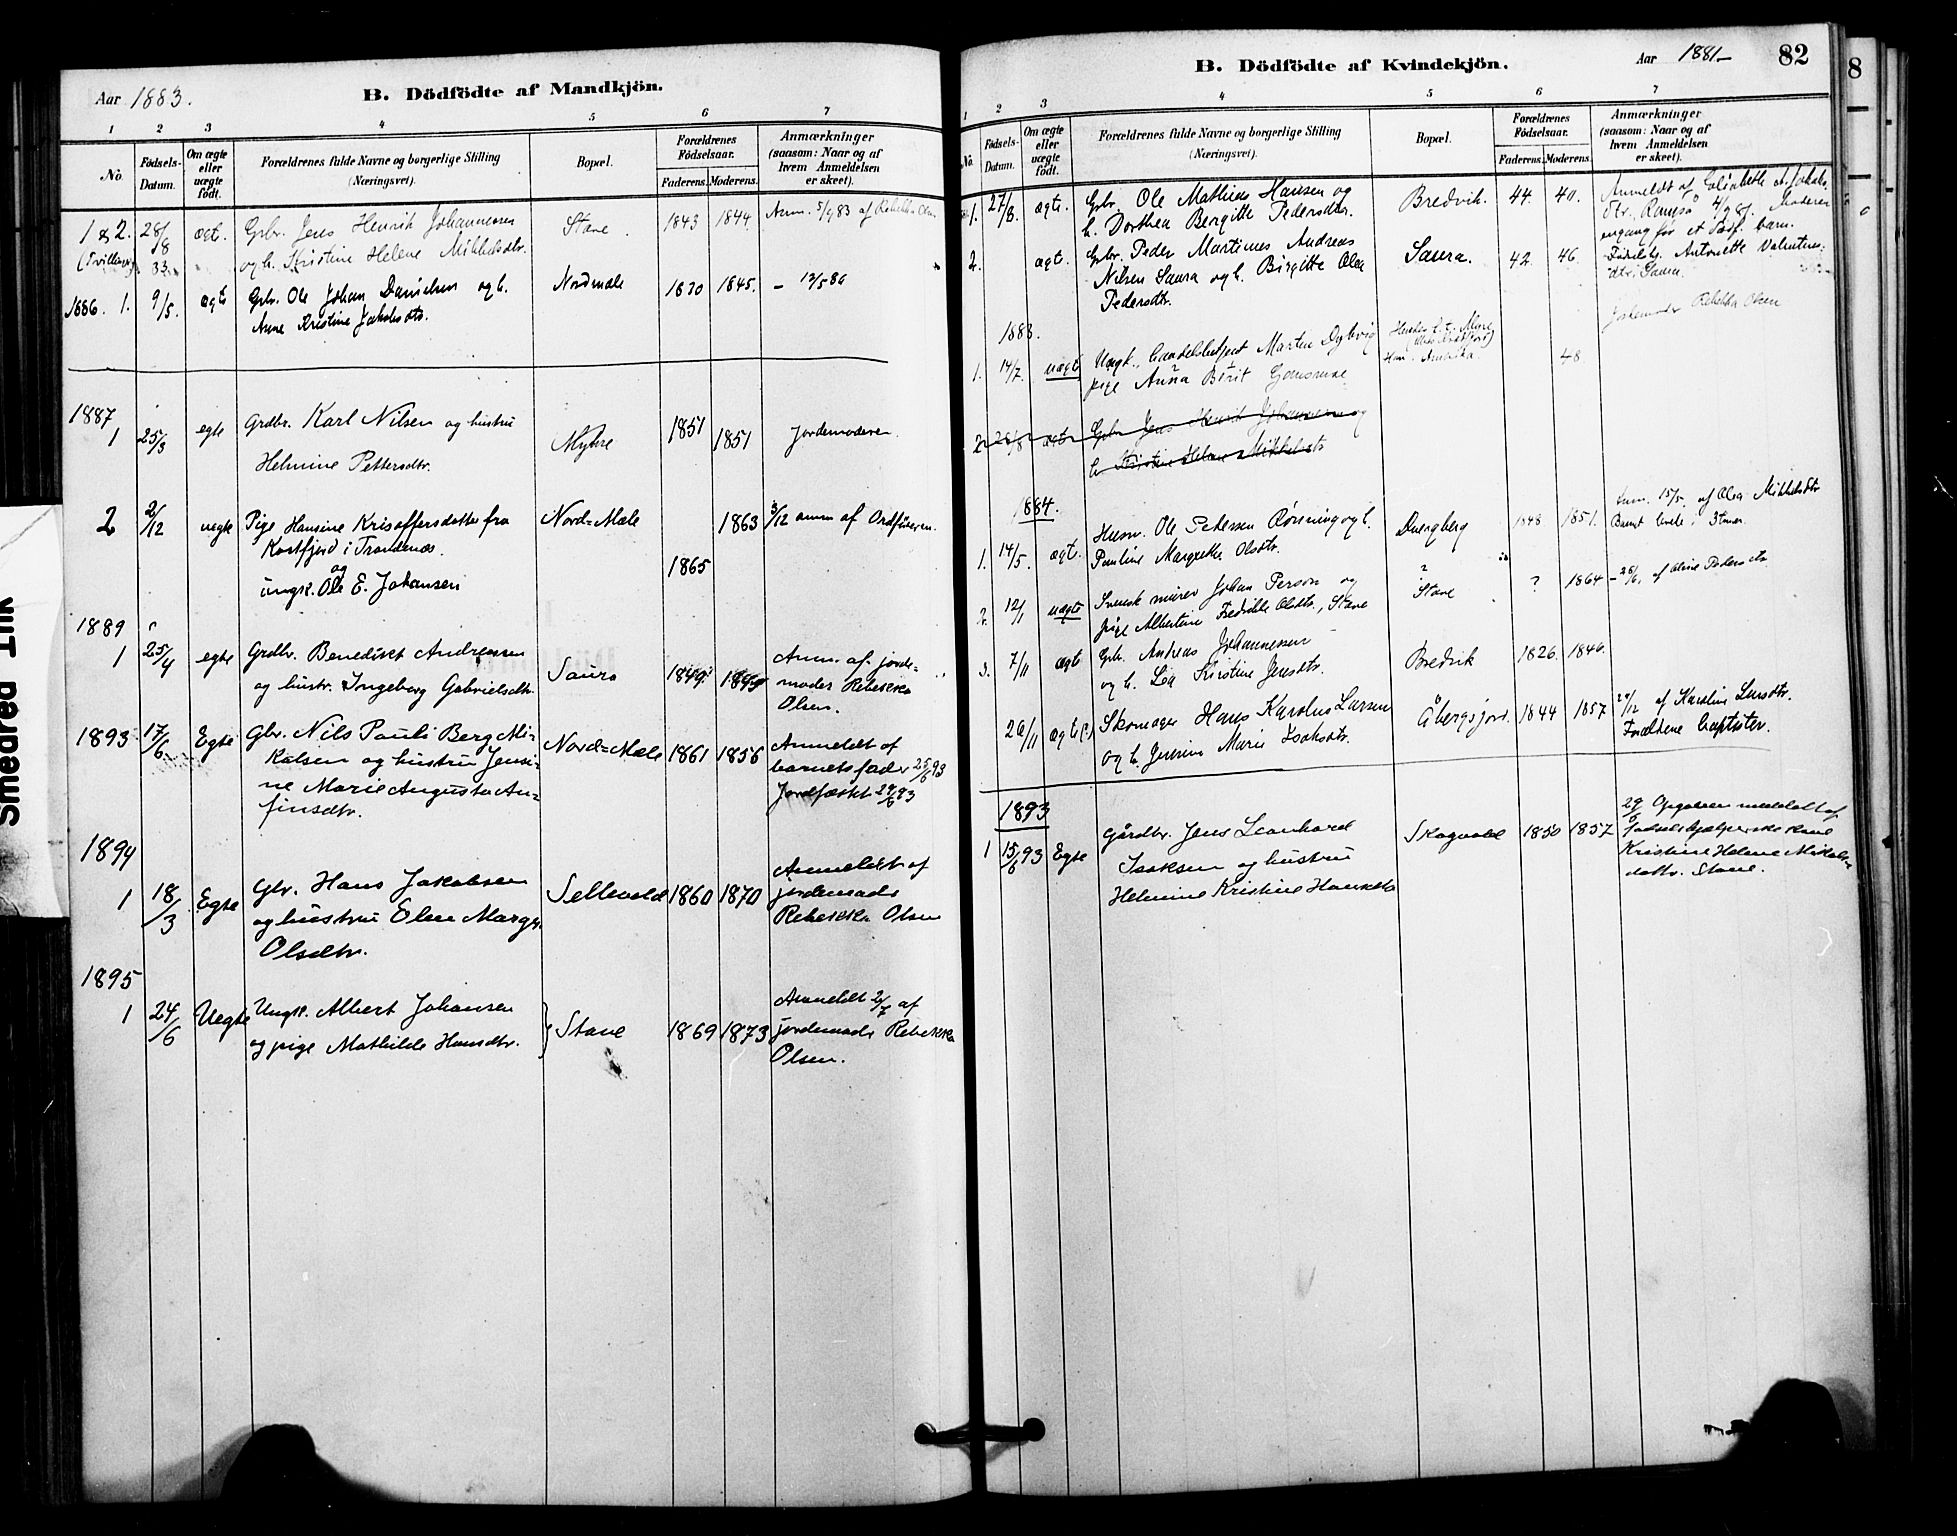 Aar 1883.
B. Dödfödte af Mandkjön.
1 2 3 4 5 6 7
No.
Födsels-Datum.
Om ægte eller uægte født.
Forældrenes fulde Navne og borgerlige Stilling
(Næringsvei).
Bopæl.
Forældrenes Fødselsaar.
Faderens. Moderens.
Anmærkninger
(saasom: Naar og af
hvem Anmeldelsen
er skeet).
1 & 2. 28/8 ægt. Gbr. Jens Henrik Johannessen Stave 1843 1844 Anm. 5/9 83 af Rebekka Olsen
(Tvillinger) 83 og h. Kristine Helene Mikkelsdtr.
1886. 1. 9/5. ægt Gbr. Ole Johan Danielsen og h. Nordmæle 1870 1845. – 12/5 86
Anne Kristine Jakobsdtr.
1887
1 25/3 egte Grdbr. Karl Nilsen og hustru Myhre 1851 1851 Jordemoderen
Helmine Pettersdtr.
2 2/12 uegte Pige Hansine Kristoffersdatter fra Nord-Mæle 1863 3/12 anm af Ordføreren
Kastfjord i Trondenæs.
og
ungk. Ole E. Johansen 1865
1889
1 25/4 egte Grdbr. Benedikt Andreassen Saura 1849 1849 Anm. af jorde-
og hustr. Ingeborg Gabrielsdtr. moder Rebekka
Olsen.
1893 17/6. Egte Gbr. Nils Pauli Berg Mi- Nord-Mæle 1861 1856 Anmeldt af
kalsen og hustru Jensi- barnets fader 25/6 93
ne Marie Augusta An- Jordfæstet 29/6 93
finsdtr.
1894
1 18/3 Egte Gbr. Hans Jakobsen Sellevold 1860 1870 Anmeldt af
og hustru Elen Margr. jordemoder
Olsdtr. Rebekka Olsen
1895
1 24/6 Uegte Ungk. Albert Johansen Stave 1869 1873 Anmeldt 2/7 af
og pige Mathilde Hansdtr. jordemoder Rebekka
Olsen.
B. Dödfödte af Kvindekjön.
Aar 1881–
82
1 2 3 4 5 6 7
No.
Födsels-Datum.
Om ægte eller uægte født.
Forældrenes fulde Navne og borgerlige Stilling
(Næringsvei).
Bopæl.
Forældrenes Fødselsaar.
Faderens. Moderens.
Anmærkninger
(saasom: Naar og af
hvem Anmeldelsen
er skeet).
1. 27/8. ægte. Gbr. Ole Mathias Hansen og Bredvik. 44. 40. Anmeldt af Elisabeth A. Jakobs-
h. Dorthea Bergitte Pedersdtr. dtr., Ramsø 4/9 81. Moderen
2. ægt. Gbr. Peder Martinus Andreas Saura. 42. 46.
Nilsen Saura og h. Birgitte Olea Antonette Valentins-
Pedersdtr. dtr. Saura
Jordemoder Rebekka Olsen
1883.
1. 14/7. uægt Ungk., handelsbetjent Martin Dybvig
pige Anna Berit Amerika 48
2. 28/8 ægt Gbr Jens Henrik Johannessen og
h. Kristine Helene Mikkelsdtr
1884.
1. 14/5. ægt. Husm. Ole Pedersen og h. Dvergberg 1848. 1851. Anm. 15/5. af Olea Mikkelsdtr
Pauline Margrethe Olsdtr. Barnet levede i 3 timer.
2. 12/1 uægt Svensk murer Johan Person og ? ? 1864
pige Albertine Fredrikke Olsdtr., Stave Stave
3. 7/11 ægt Gbr. Andreas Johannessen Bredvik 1826. 1846.
og h. Lea Kristine Jensdtr.
26/11 ægt(?) Skomager Hans Karolus Larsen Åbergsjord. 1844 1857 24/12 af Karoline Larsdtr.
og h. Jensine Marie Isaksdtr. Forældrene baptister.
1893
1 15/6 93 Egte Gårdbr. Jens Leonhard Skogvold 1850 1857 29/6 Opgaven meddelt af
Isaksen og hustru fødselshjælperske
Helmine Kristine Hansdtr Kristine Helene Mikals-
datter. Stave.
8
Smedred Ink